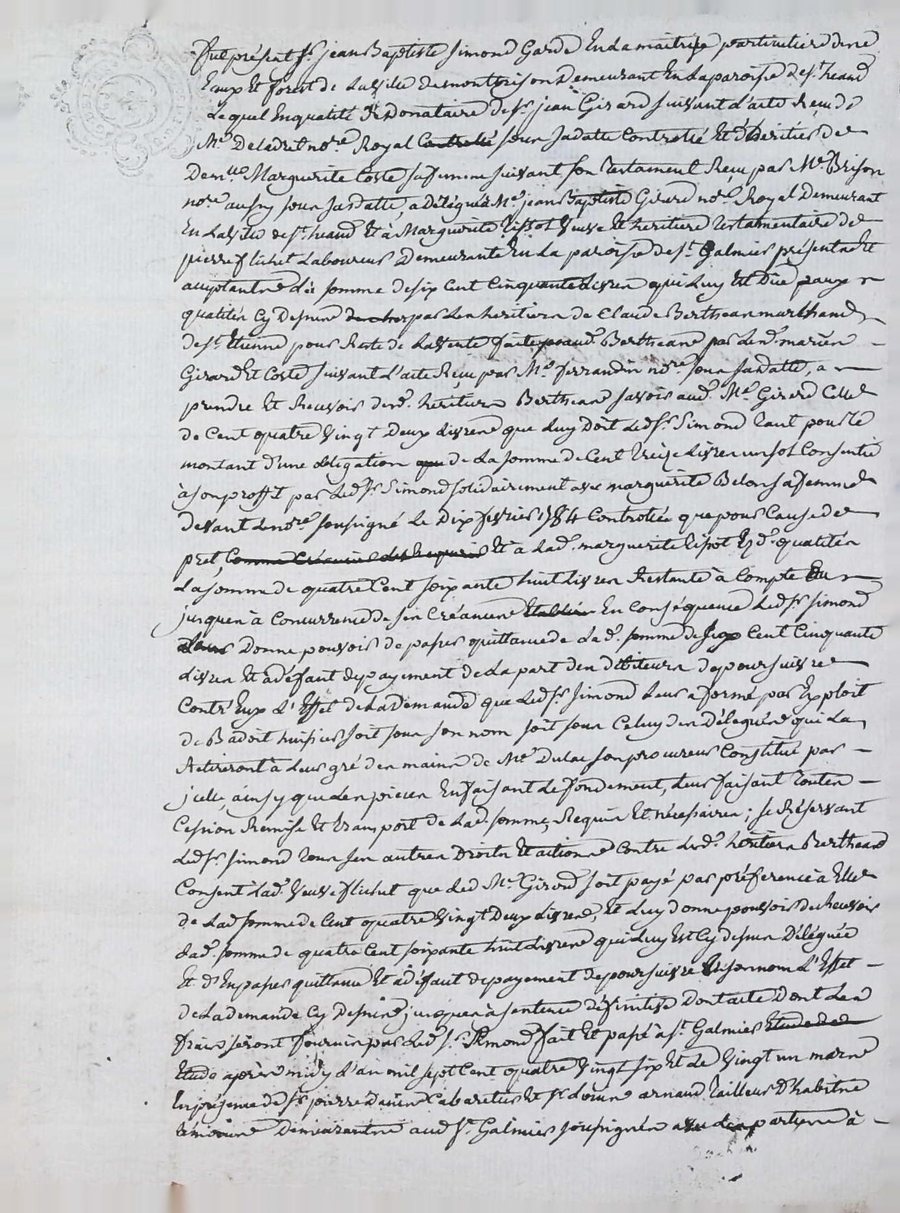 Fut présent Sr jean Baptiste Simond Garde En la maitrise particuliere des
Eaux et forest de La Ville de montbrison Demeurant En La paroisse de St heand
Lequel En qualité de Donataire de Sr jean Girard suivant L'acte Reçu de
Me Deledret nore Royal sous sa datte Controllé Et d'heritier de
Demlle Marguerite Coste sa femme suivant son Testament Reçu par Me Brison
nore aussy sous sa datte, a délégué à Me jean Baptiste Girard nore Royal Demeurant
En La Ville de St heand Et à Marguerite Tissot Veuve et heritiere Testamentaire de
pierre flichet Laboureur Demeurante En La paroisse de St Galmier présents Et
acceptants La somme de six Cent Cinquante Livres qui Luy Est Due paux
qualités Cy Dessus par Les heritiers de Claude Bertheas marchand
de St Etienne pour Reste de La Vente faite aud. Bertheas par Les d. mariés
Girard Et Coste suivant L'acte Reçu par Me ferrandin nore sous sa datte, a
prendre Et Recevoir des d. heritiers Bertheas savoir aud. Me Girard Celle
de Cent quatre Vingt Deux Livres que Luy Doit Led. Sr Simond Tant pour Le
montant d'une obligation de La somme de Cent Treize Livres un sol Consentie
à son proffit par Led. Sr Simond solidairement avec marguerite Belon sa femme
devant Le nore soussigné Le Dix fevrier 1784 Controllée que pour Cause de
pret Et à Lad. marguerite Tissot Esd. qualités
La somme de quatre Cent soixante huit Livres Restante à Compte
jusques à Concurrence de ses Créances En Conséquence Led. Sr Simond
Donne pouvoir de passer quittance de Lad. somme de six Cent Cinquante
Livres Et a défaut de payement de La part des débiteurs de poursuivre
Contr'Eux L'Effet de La demande que Led. Sr Simond Leur a formé par Exploit
de Badoit huissier soit sous son nom soit sous Celuy des Délégués qui La
Retireront à Leur gré des mains de Me Dulac son procureur Constitué par
jcelle, ainsy que Les pieces En faisant Le fondement, Leur faisant Toutes
Cession Remise Et transport de Lad. somme, Requis Et nécessaires; se Réservant
Led. Sr Simond Tous ses autres Droits Et actions Contre Les d. héritiers Bertheas
Consent Lad. Veuve flichet que Led. Me Girard soit payé par préférence à Elle
de Lad. somme de Cent quatre Vingt Deux Livres, Et Luy donne pouvoir de Recevoir
Lad. somme de quatre Cent soixante huit Livres qui Luy Est Cy dessus Déléguée
Et d'En passer quittance Et a défaut de payement de poursuivre En son nom L'Effet
de La demande Cy Dessus jusques à sentence définitive Dont acte Dont Les
frais seront fournis par Led. Sr Simond fait Et passé à St Galmier
Etude après midy L'an mil sept Cent quatre Vingt six Et Le Vingt un mars
En présence de Sr pierre Cabaretier Et Sr arnaud Tailleur D'habits
témoins Demeurants aud. St Galmier soussignés avec Les parties à